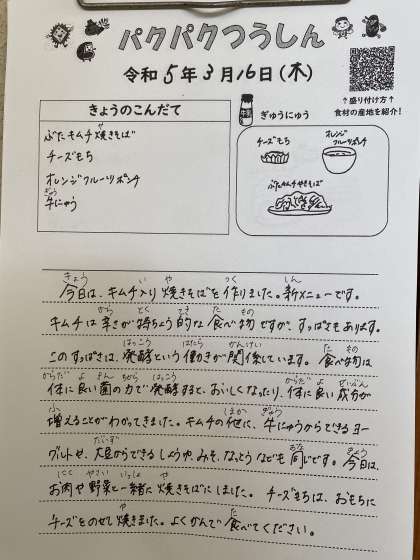 パクパクつうしん
令和5年3月16日(木)
↑盛り付け方↑
食材の産地を紹介!
きょうのこんだて
ぶたキムチ焼きそば
チーズもち
オレンジフルーツポンチ
牛にゅう
ぎゅうにゅう
チーズもち
オレンジ
フルーツポンチ
ぶたキムチやきそば
今日は、キムチ入り焼きそばを作りました。新メニューです。
キムチは辛さが特ちょう的な食べ物ですが、すっぱさもあります。
このすっぱさは、発酵という働きが関係しています。食べ物は
体に良い菌の力で発酵すると、おいしくなったり、体に良い成分が
増えることがわかってきました。キムチの他に、牛にゅうからできるヨー
グルトや、大豆からできるしょうゆ、みそ、なっとうなども同じです。今日は、
お肉や野菜と一緒に焼きそばにしました。チーズもちは、おもちに
チーズをのせて焼きました。よくかんで食べてください。